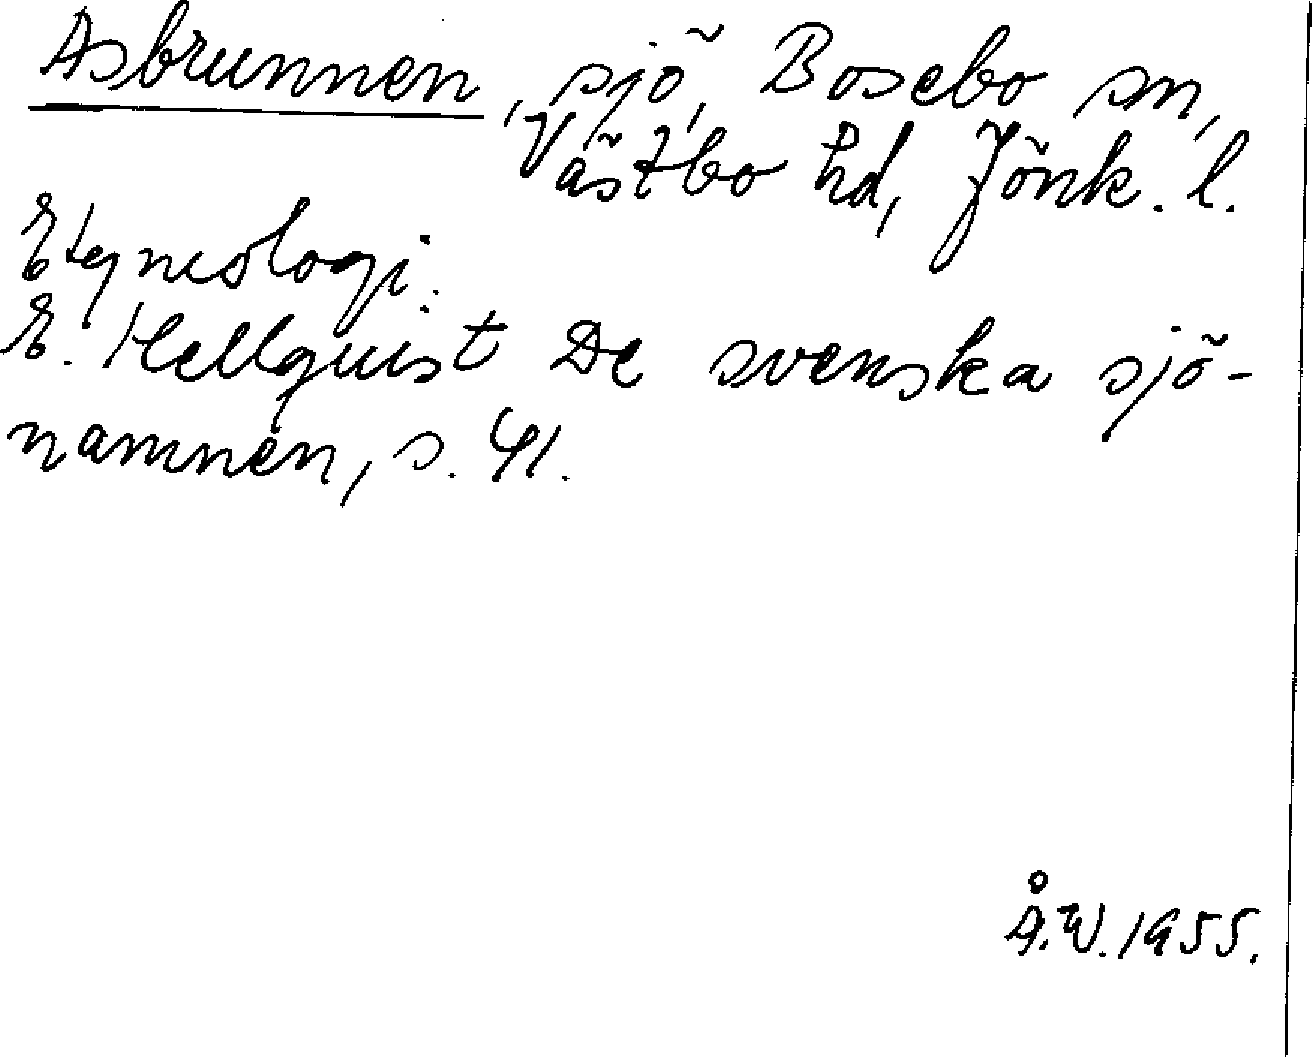 Asbrunnen, sjö, Bosebo sn,
Västbo hd, Jönk. l.
Etymologi:
E. Hellquist De svenska sjö-
namnen, s. 41.
Å.W. 1955.